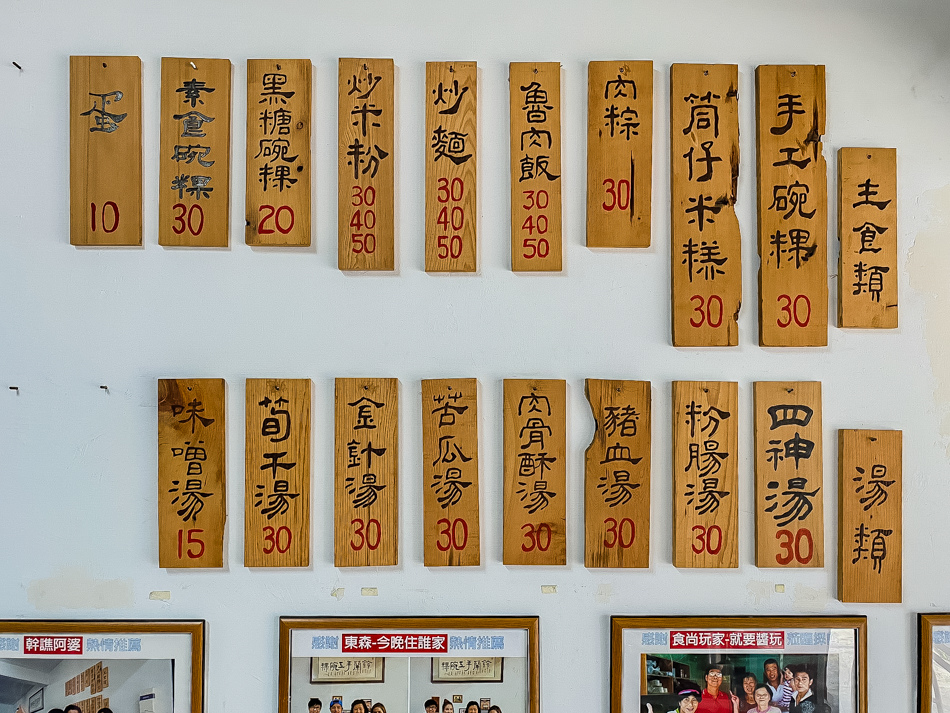 主食類
手工碗粿
30
筒仔米糕
30
肉粽
30
魯肉飯
30
40
50
炒麵
30
40
50
炒米粉
30
40
50
黑糖碗粿
20
素食碗粿
30
蛋
10
湯類
四神湯
30
粉腸湯
30
豬血湯
30
肉骨酥湯
30
苦瓜湯
30
金針湯
30
筍干湯
30
味噌湯
15
感謝 幹譙阿婆 熱情推薦
感謝 東森-今晚住誰家 熱情推薦
感謝 食尚玩家-就要醬玩